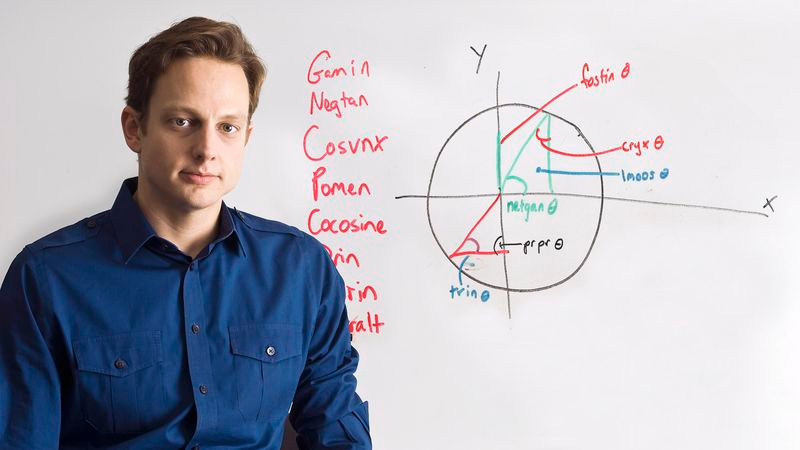 Gamin
Negtan
Cosvnx
Pomen
Cocosine
rin
rin
ralt
Y
fostin θ
cryx θ
lmoos θ
x
netgan θ
prpr θ
trin θ